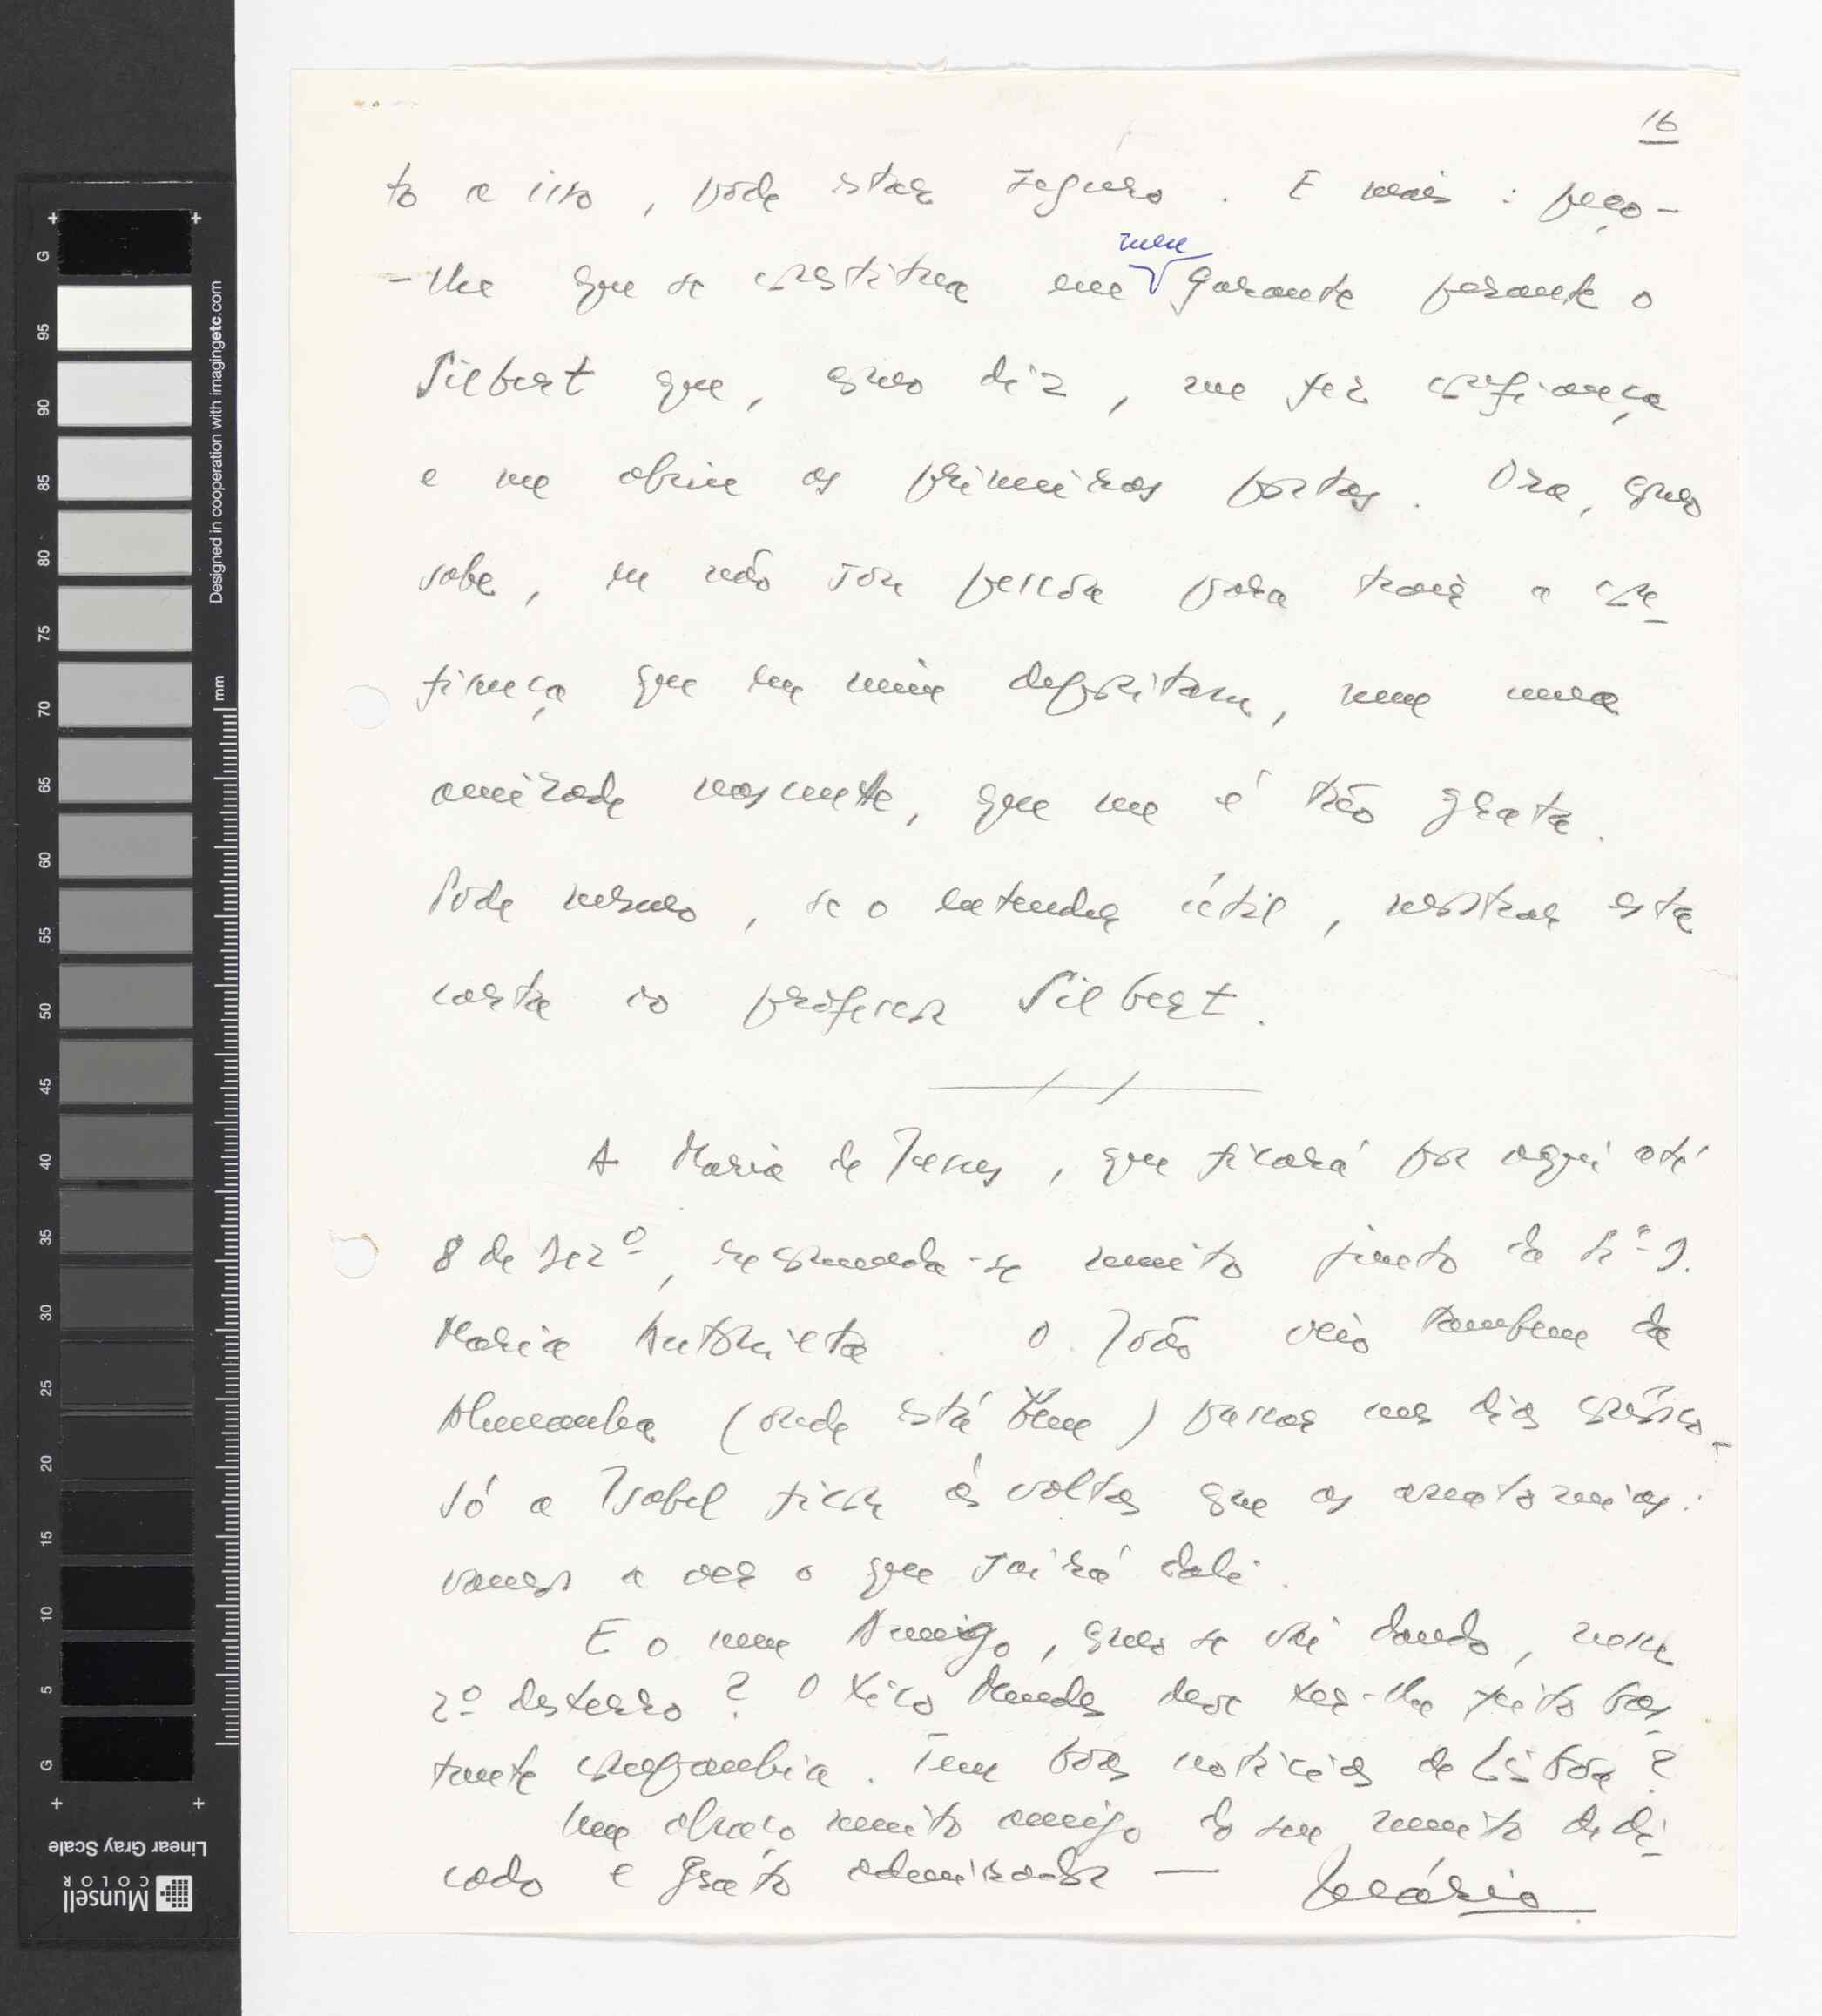 16
to a isso, pode estar seguro. E mais: peço-
-lhe que se constitua em meu garante perante o
Silbert que, como diz, me fez confiança
e me abriu as primeiras portas. Ora, como
sabe, eu não sou pessoa para trair a con-
fiança que em mim depositam, nem uma
amizade nascente, que me é tão grata.
Pode mesmo, se o entender útil, mostrar esta
carta ao professor Silbert.
A Maria de Jesus, que ficará por aqui até
8 de Dezº, recomenda-se muito junto da Srª D.
Maria Antonieta. O João veio também da
Alemanha (onde está bem) passar uns dias connosco.
Só a Isabel ficou às voltas que as anatomias:
vamos a ver o que sairá dali.
E o meu Amigo, como se vai dando, nesse
2º desterro? O Xico Mendes deve ter-lhe feito bas-
tante companhia. Tem boas notícias de Lisboa?
Um abraço muito amigo do seu muito dedi-
cado e grato admirador —
Mário
Designed in cooperation with imagingetc.com
mm
G
95
90
85
80
75
70
65
60
55
50
45
40
35
30
25
20
15
10
5
G
Linear Gray Scale
Munsell
COLOR